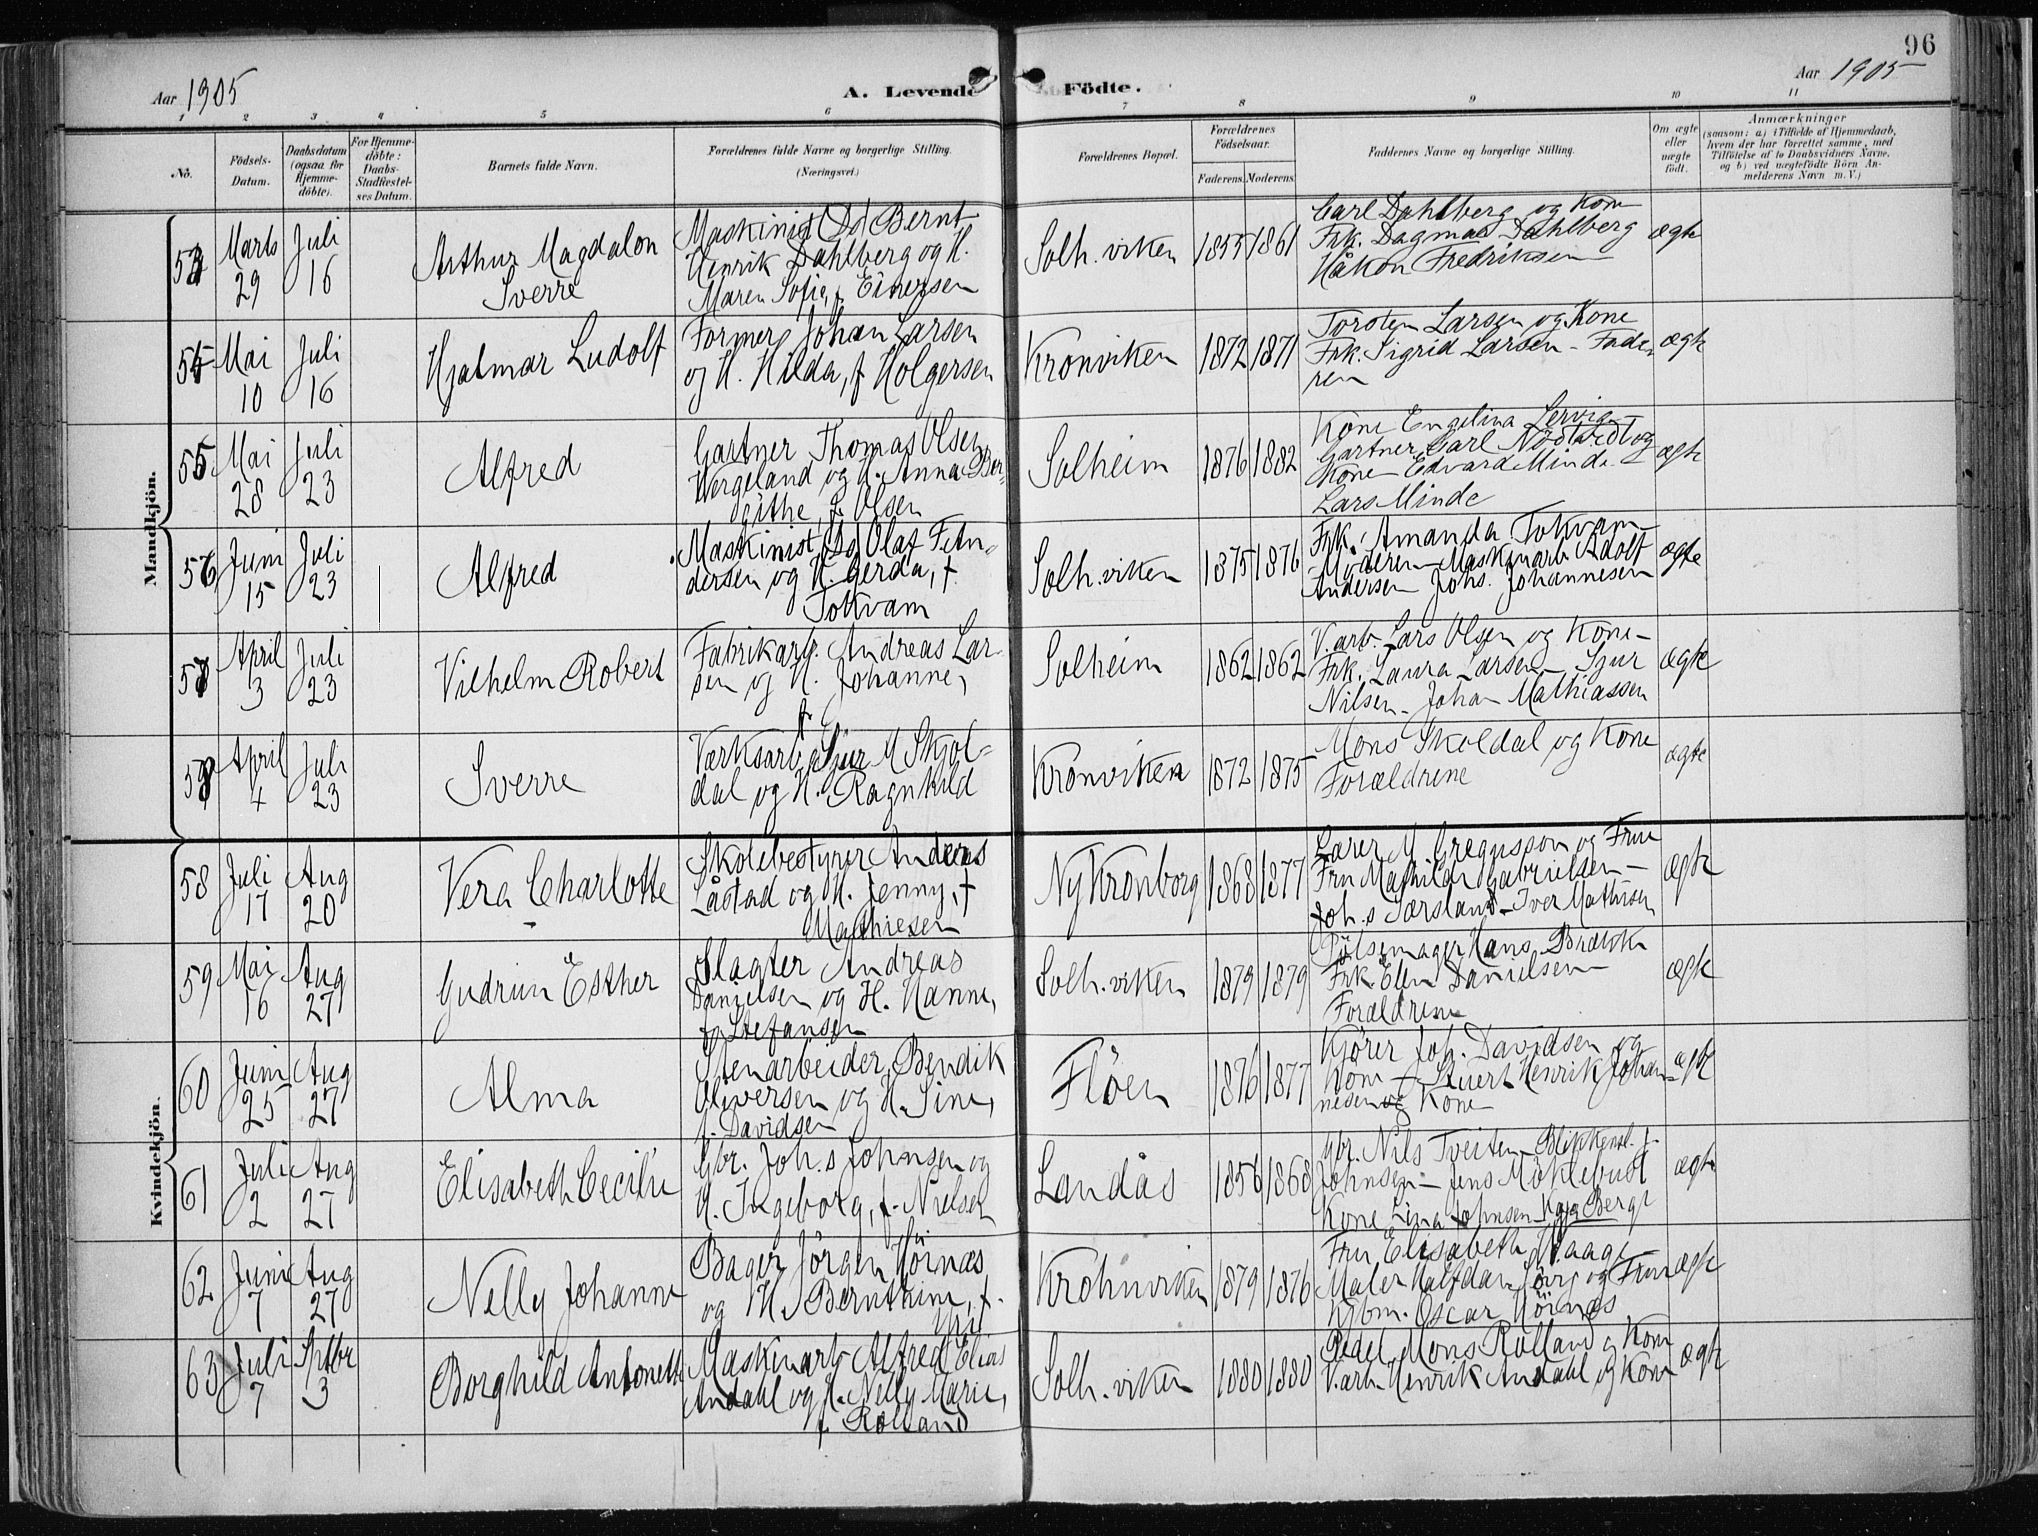 96
Aar 1905
A. Levende Födte.
Aar 1905
1 2 3 4 5 6 7 8 9 10 11
No.
Födsels-
Datum.
Daabsdatum
(ogsaa for
Hjemme-
döbte).
For Hjemme-
döbte:
Daabs-
Stadfæstel-
ses Datum.
Barnets fulde Navn.
Forældrenes fulde Navne og borgerlige Stilling.
(Næringsvei.)
Forældrenes Bopæl.
Forældrenes
Födselsaar.
Faderens. Moderens.
Faddernes Navne og borgerlige Stilling.
Om ægte
eller
uægte
födt.
Anmærkninger
(saasom: a) i Tilfælde af Hjemmedaab,
hvem der har forrettet samme, med
Tilföielse af to Daabsvidners Navne,
og b) ved uægtefödte Börn An-
melderens Navn m. V.)
Mandkjön.
Marts
29
Juli
16
Arthur Magdalon
Sverre
Maskinist Bernt
Henrik Dahlberg og H.
Maren Sofie, f. Einersen
Solh.viken
1855 1861
Carl Dahlberg og Kone
Frk. Dagmar Dahlberg
Håkon Fredriksen
ægte
Mai
10
Juli
16
Hjalmar Ludolf
Former Johan Larsen
og H. Hilda, f. Holgersen
Kronviken
1872 1871
Torsten Larsen og Kone
Frk. Sigrid Larsen - Fade-
ren
ægte
55
Mai
28
Juli
23
Alfred
Gartner Thomas Olsen
Hergeland og H. Anna Ber-
githe, f. Olsen
Solheim
1876 1882
Kone Engelina Lervig
Gartner Carl Nödtvedt og
Kone Edvard Minde -
Lars Minde
ægte
56
Juni
15
Juli
23
Alfred
Maskinist Olaf F. An-
dersen og H. Gerda, f.
Tokvam
Solh.viken
1875 1876
Frk. Amanda Tokvam -
Moderen - Maskinarb. Adolf
Andersen Johs. Johannesen
ægte
57
April
3
Juli
23
Vilhelm Robert
Fabrikarb. Andreas Lar-
sen og H. Johanne,
f.
Solheim
1862 1862
V.arb. Lars Olsen og Kone -
Frk. Laura Larsen - Sjur
Nilsen - Johan Mathiassen
ægte
April
4
Juli
23
Sverre
Værksarb. Sjur M Skjol-
dal og H. Ragnhild
Kronviken
1872 1875
Mons Skoldal og Kone
Forældrene
ægte
Kvindekjön.
58
Juli
17
Aug
20
Vera Charlotte
Skolebestyrer Anders
Låstad og H. Jenny, f.
Mathiesen
Ny Kronborg
1868 1877
Lærer M. Gregusson og Frue
Fru Mathilde Gabrielsen -
Joh.s Særsland - Iver Mathisen
ægte
59
Mai
16
Aug
27
Gudrun Esther
Slagter Andreas
Danielsen og H. Hanne,
f. Stefansen
Solh.viken
1879 1879
Pölsemager Hans
Frk. Ellen Danielsen -
Forældrene
ægte
60
Juni
25
Aug
27
Alma
Stenarbeider Bendik
Oliversen og H. Sine,
f. Davidsen
Flöen
1876 1877
Kjörer Joh. Davidsen og
Kone - Henrik Johan-
nesen og Kone
ægte
61
Juli
2
Aug
27
Elisabeth Cecilie
Gbr. Joh.s Johnsen og
H. Ingeborg, f. Nielsen
Landås
1856 1868
Gbr. Nils Tveiten - Blikkensl. J.
Johnsen - Jens Möklebust
Kone Lina Johnsen Kaja Berge
ægte
62
Juni
7
Aug
27
Nelly Johanne
Bager Jörgen Hörnæs
og H. Bernthine, f.
Krohnviken
1879 1876
Fru Elisabeth Haage
Maler Halfdan og Frue
Kjbm. Oscar Hörnæs
ægte
63
Juli
7
Sptbr
3
Borghild Antonette
Maskinarb. Alfred Elias
Andahl og H. Nelly Marie,
f. Rolland
Solh.viken
1880 1880
Pedel Mons Rolland og Kone
V.arb. Henrik Andahl og Kone
ægte